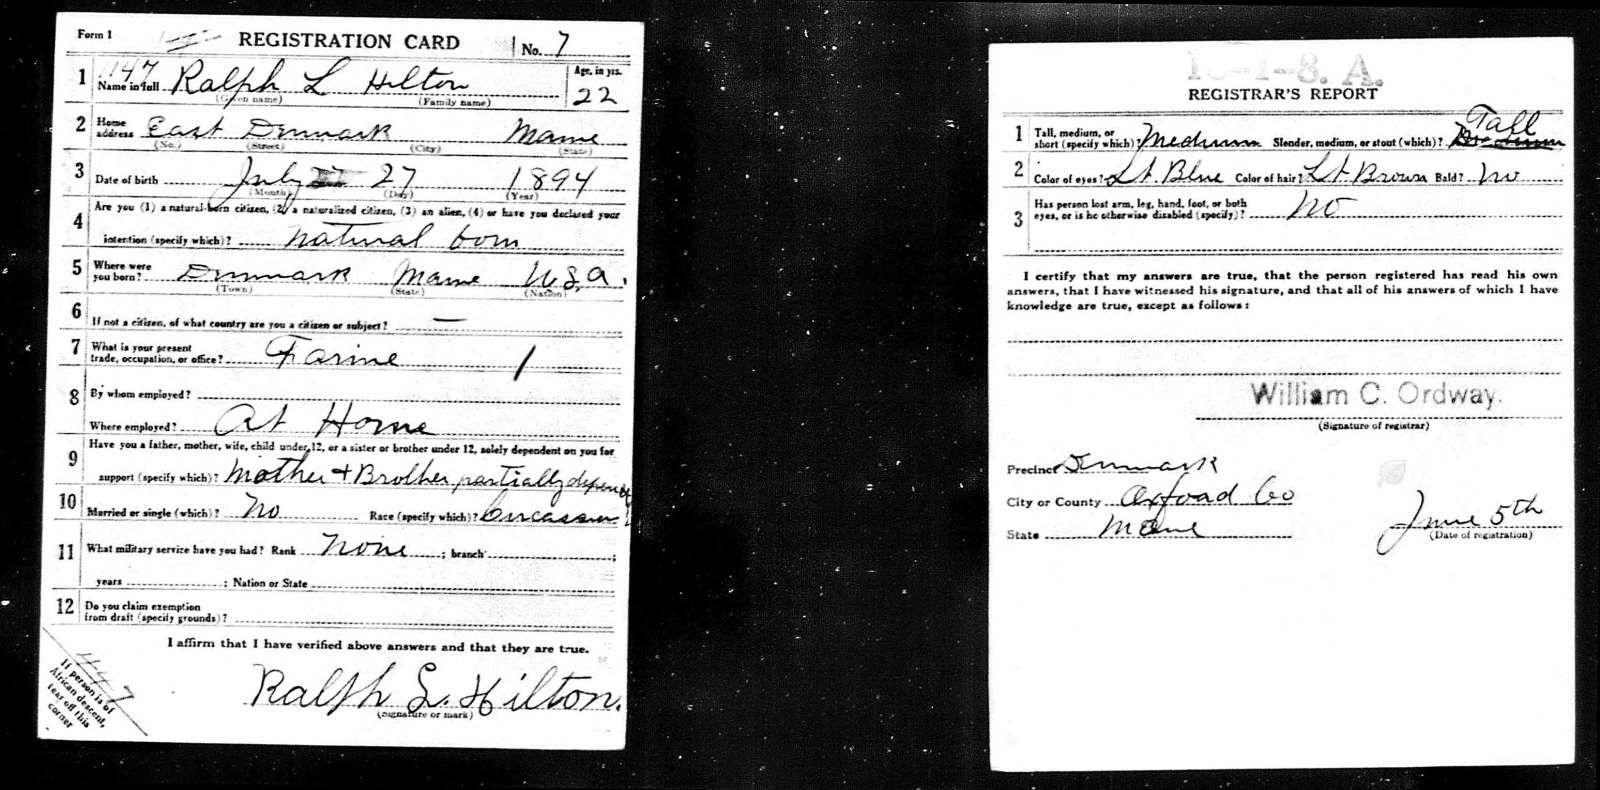 Form 1 REGISTRATION CARD No. 7
1 Name in full Ralph L Hilton Age, in yrs. 22
(Given name) (Family name)
2 Home address East Denmark Maine
(No.) (Street) (City) (State)
3 Date of birth July 27 1894
(Month) (Day) (Year)
4 Are you (1) a natural-born citizen, (2) a naturalized citizen, (3) an alien, (4) or have you declared your
intention (specify which)? natural born
5 Where were you born? Denmark Maine U.S.A.
(Town) (State) (Nation)
6 If not a citizen, of what country are you a citizen or subject? —
7 What is your present
trade, occupation, or office?
8 By whom employed?
Where employed? At Home
9 Have you a father, mother, wife, child under 12, or a sister or brother under 12, solely dependent on you for
support (specify which)? Mother + Brother, partially
10 Married or single (which)? No Race (specify which)?
11 What military service have you had? Rank None ; branch ;
years ; Nation or State
12 Do you claim exemption
from draft (specify grounds)?
I affirm that I have verified above answers and that they are true.
Ralph L. Hilton.
(Signature or mark)
If person is of
African descent,
tear off this
corner
REGISTRAR'S REPORT
1 Tall, medium, or
short (specify which)? Medium Slender, medium, or stout (which)? Tall
2 Color of eyes? Lt. Blue Color of hair? Lt. Brown Bald? No
3 Has person lost arm, leg, hand, foot, or both
eyes, or is he otherwise disabled (specify)? No
I certify that my answers are true, that the person registered has read his own
answers, that I have witnessed his signature, and that all of his answers of which I have
knowledge are true, except as follows:
William C. Ordway.
(Signature of registrar)
Precinct Denmark
City or County Oxford Co
State Maine
June 5th
(Date of registration)